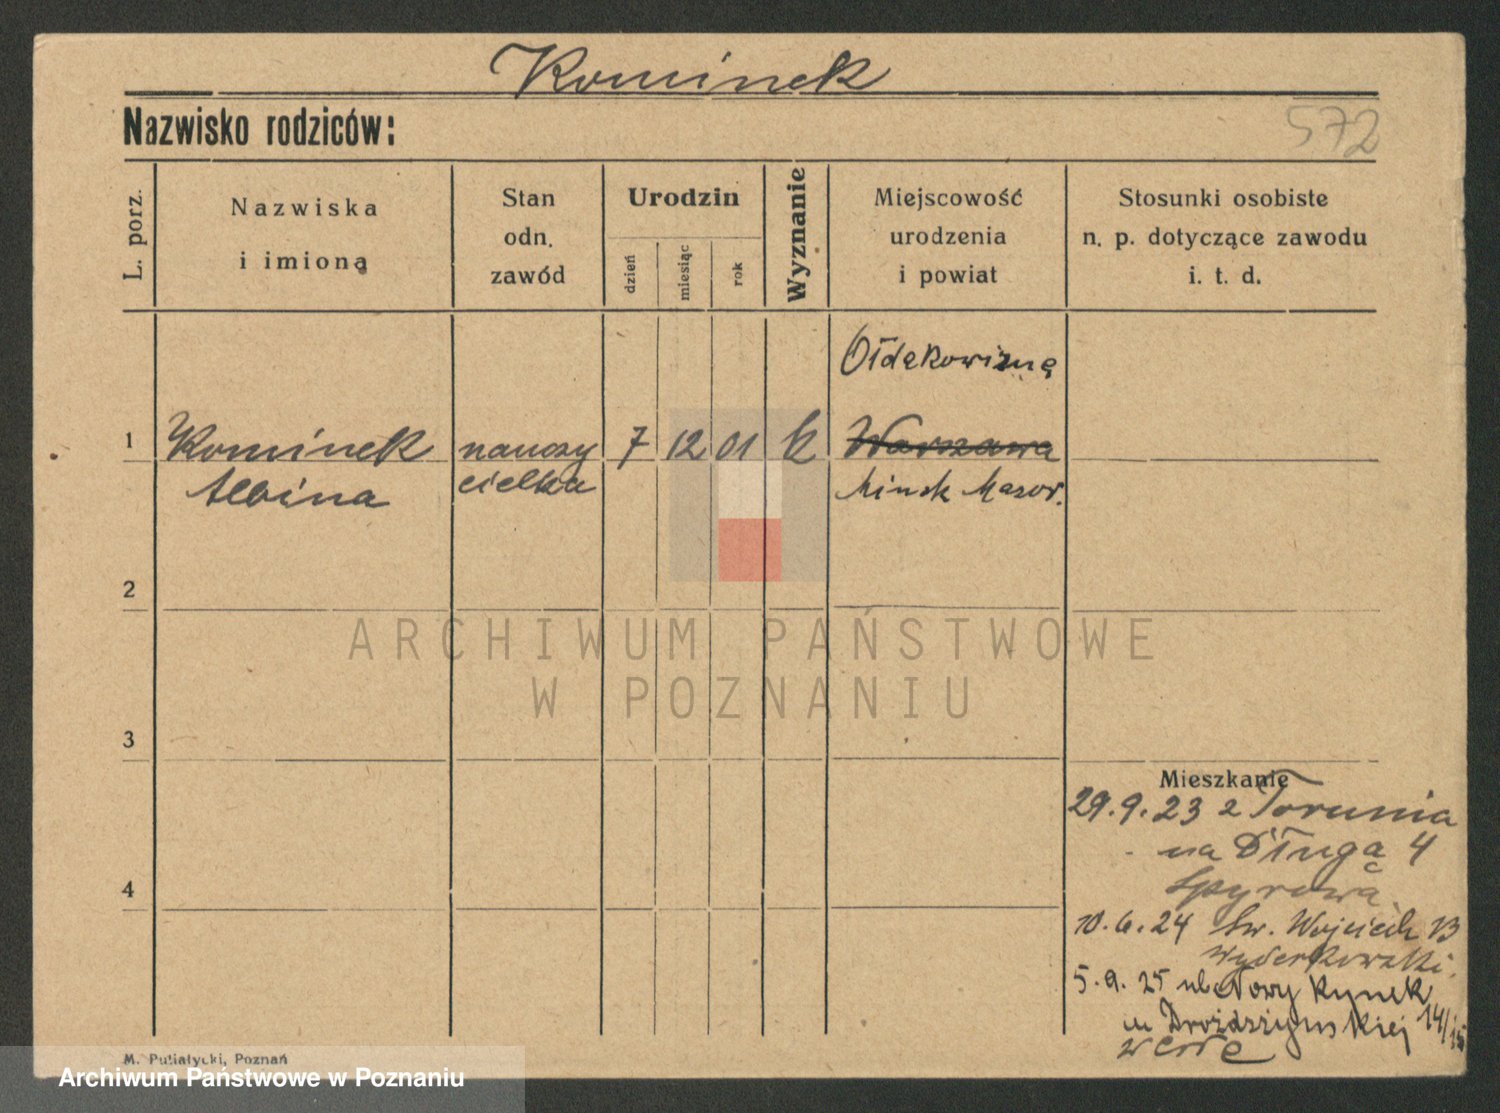 Kominek
Nazwisko rodziców:
572
L. porz.
Nazwiska
i imioną
Stan
odn.
zawód
Urodzin
dzień
miesiąc
rok
Wyznanie
Miejscowość
urodzenia
i powiat
Stosunki osobiste
n. p. dotyczące zawodu
i. t. d.
Ołdakowizna
1
Kominek
nauczy
7
12
01
k
Warszawa
Albina
cielka
Minsk Mazow.
2
ARCHIWUM PAŃSTWOWE
W POZNANIU
3
Mieszkanie
29.9.23 z Torunia
na Długą 4
4
10.6.24 Św. Wojciech
Wyderkowski
5.9.25 Nowy Rynek
14/15
u Drożdżyńskiej
M. Putiatycki, Poznań
Archiwum Państwowe w Poznaniu